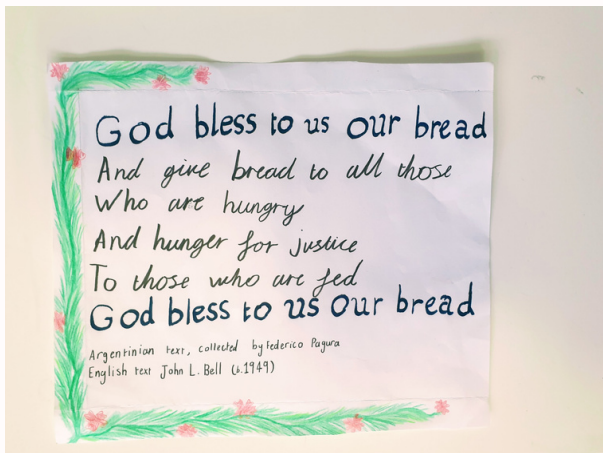 God bless to us our bread
And give bread to all those
Who are hungry
And hunger for justice
To those who are fed
God bless to us our bread
Argentinian text, collected by Federico Pagura
English text John L. Bell (b.1949)